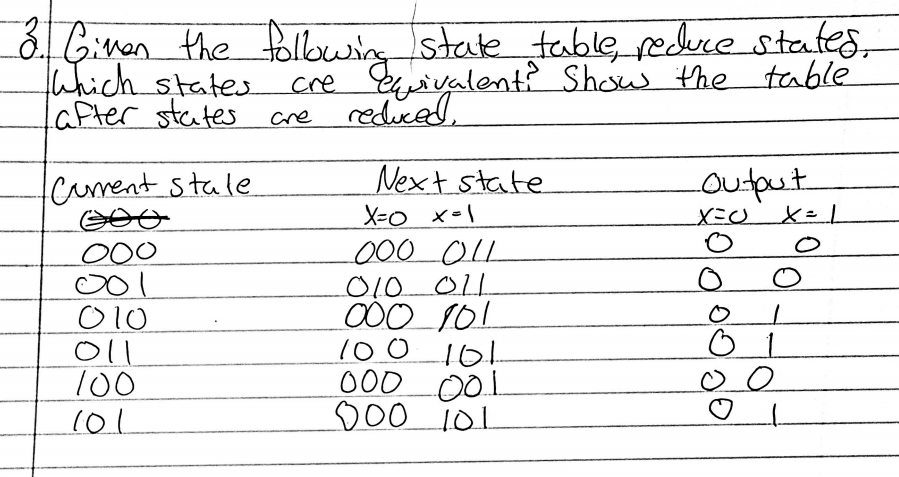 3. Given the following state table, reduce states.
Which states are equivalent? Show the table
after states are reduced.
Current state Next state Output
X=0 X=1 X=0 X=1
000 000 011 0 0
001 010 011 0 0
010 000 101 0 1
011 100 101 0 1
100 000 001 0 0
101 000 101 0 1